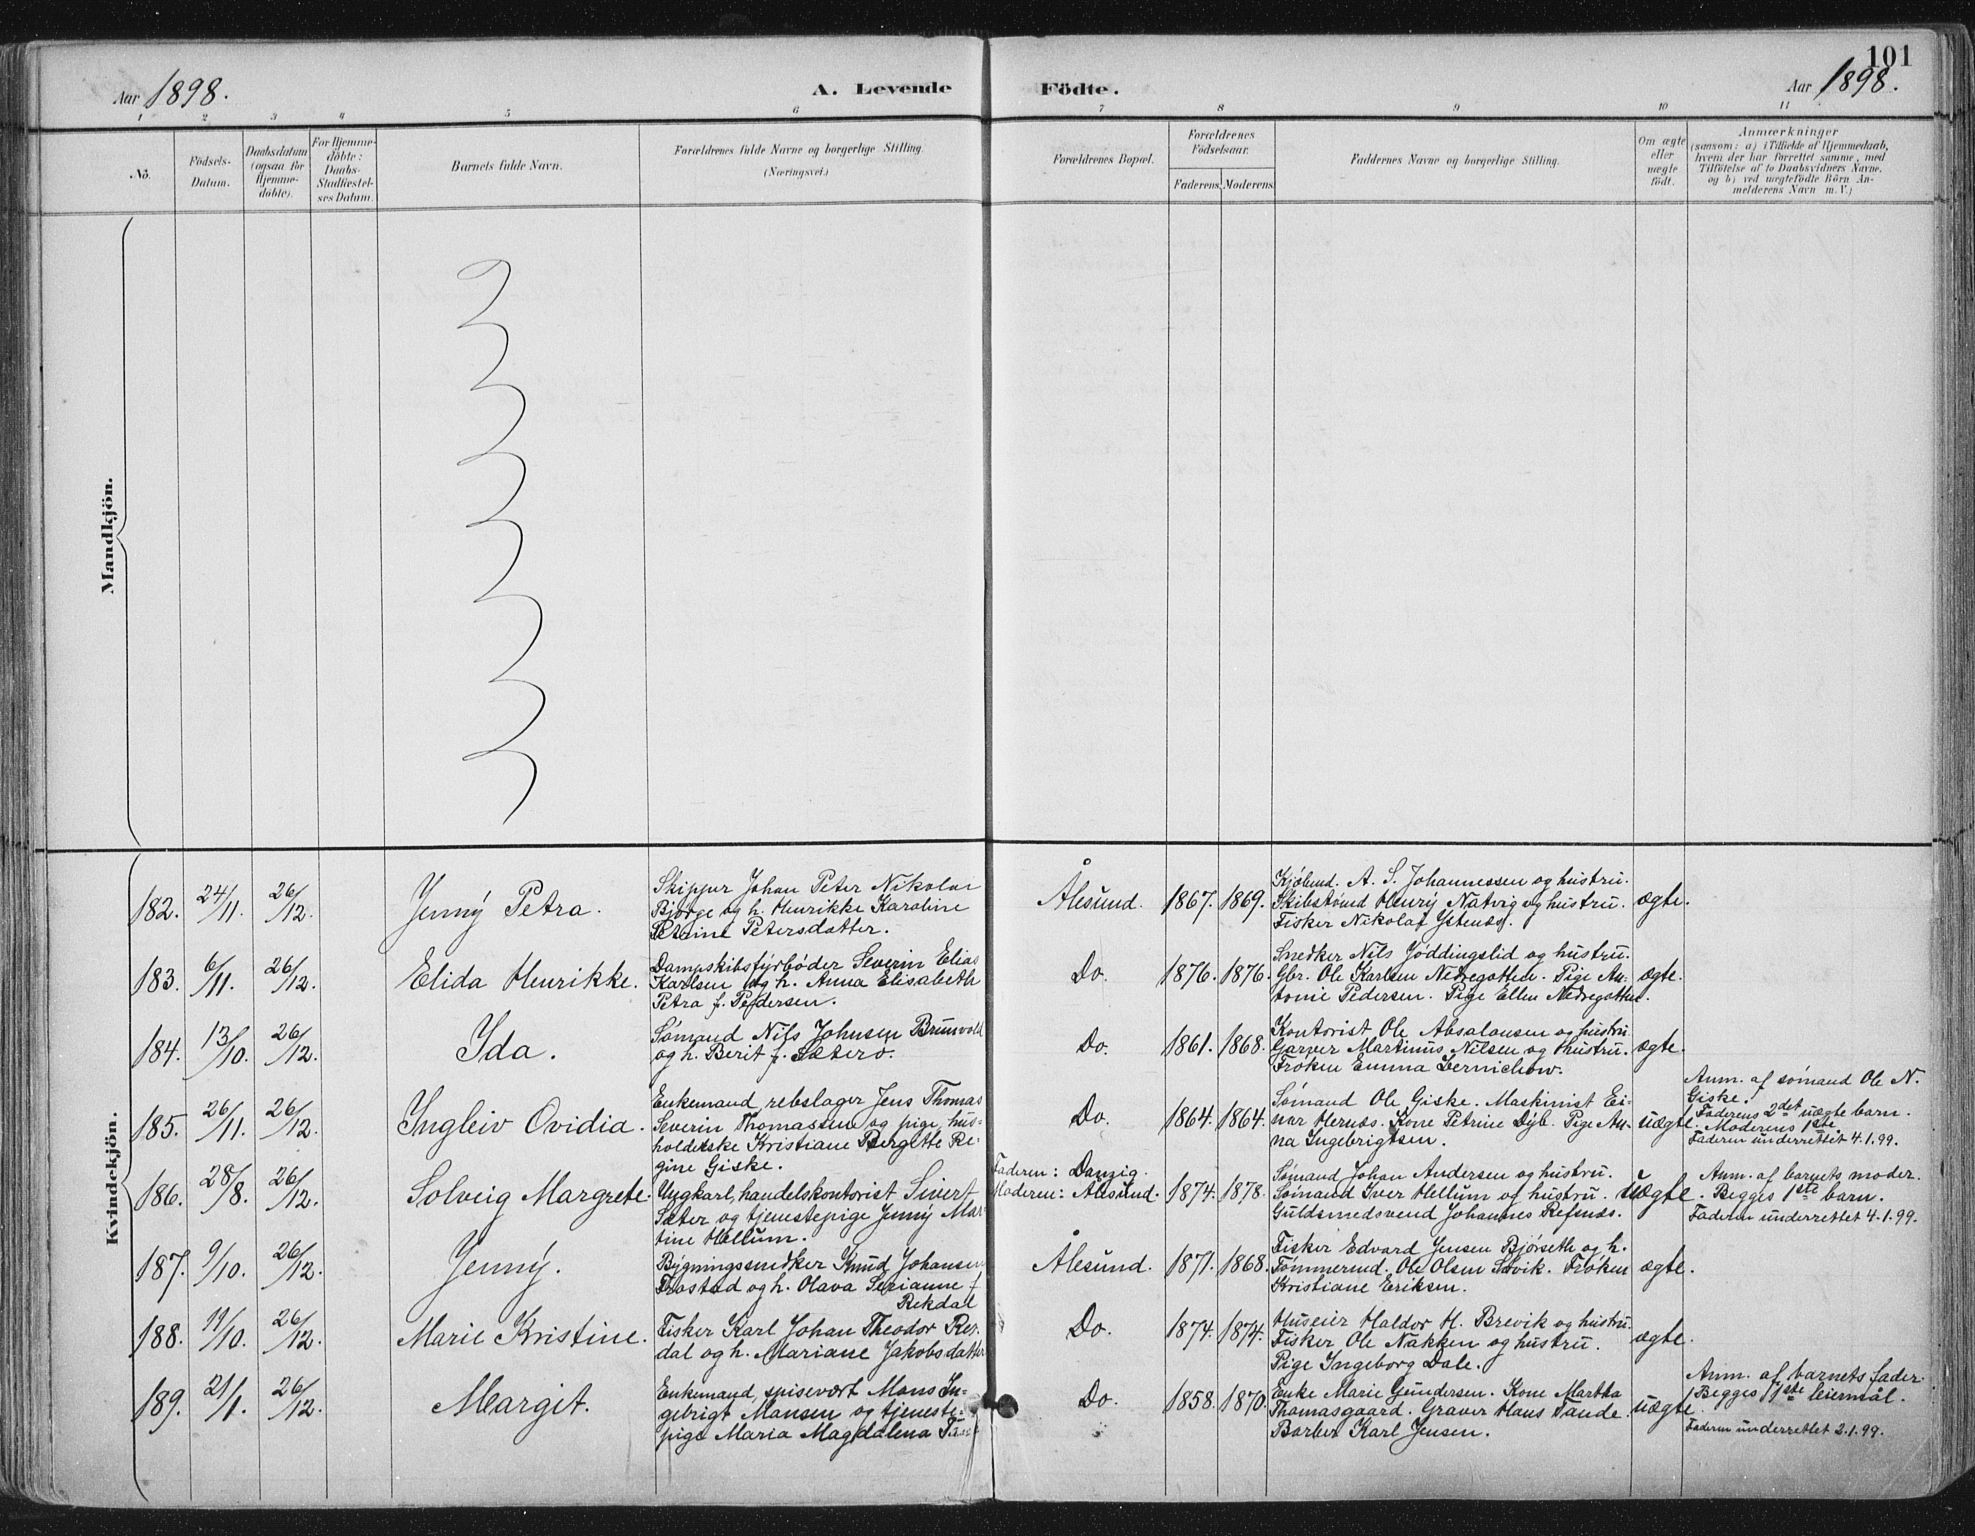 101
Aar 1898.
A. Levende Födte.
Aar 1898.
1 2 3 4 5 6 7 8 9 10 11
No.
Födsels-
Datum.
Daabsdatum
(ogsaa for
Hjemme-
döbte).
For Hjemme-
döbte:
Daabs-
Stadfæstel-
ses Datum.
Barnets fulde Navn.
Forældrenes fulde Navne og borgerlige Stilling.
(Næringsvei.)
Forældrenes Bopæl.
Forældrenes
Födselsaar.
Faderens. Moderens.
Faddernes Navne og borgerlige Stilling.
Om ægte
eller
uægte
födt.
Anmærkninger
(saasom: a) i Tilfælde af Hjemmedaab,
hvem der har forrettet samme, med
Tilföielse af to Daabsvidners Navne,
og b) ved uægtefödte Börn An-
melderens Navn m. V.)
Mandkjön.
Kvindekjön.
182. 24/11. 26/12. Jenny Petra.
Skipper Johan Peter Nikolai
Bjørge og h. Henrikke Karoline
Petrine Petersdatter.
Ålesund. 1867. 1869.
Kjøbmd. A. S. Johannessen og hustru.
Skibstømd Henry Natvig og hustru.
Fisker Nikolai Ystenæs.
ægte.
183. 6/11. 26/12. Elida Henrikke.
Dampskibsfyrbøder Severin Elias
Karlsen og h. Anna Elisabeth
Petra f. Pedersen.
Do. 1876. 1876.
Snedker Nils Jøddingslid og hustru.
Gbr. Ole Karlsen Nedregotten. Pige An-
tonie Pedersen. Pige Ellen Nedregotten.
ægte.
184. 13/10. 26/12. Ida.
Sømand Nils Johnsen Brunvold
og h. Berit f. Sætero.
Do. 1861. 1868.
Kontorist Ole Absalonsen og hustru
Garver Martinus Nilsen og hustru.
Frøken Emma Dernichow.
ægte.
185. 26/11. 26/12. Ingleiv Ovidia.
Enkemand, rebslager Jens Thomas
Severin Thomassen og pige, hus-
holderske Kristiane Bergitte Re-
gine Giske.
Do. 1864. 1864.
Sømand Ole Giske. Maskinist Ei-
nar Hernæs. Kone Petrine Dyb. Pige An-
na Ingebrigtsen.
uægte.
Anm. af sømand Ole N.
Giske.
Faderens 2det uægte barn.
Moderens 1ste.
Faderen underrettet 4.1.99.
186. 28/8. 26/12. Solveig Margrete.
Ungkarl, handelskontorist Sivert
Sæter og tjenestepige Jenny Mar-
tine Hellum.
Faderen: Danzig.
Moderen: Ålesund. 1874. 1878.
Sømand Johan Andersen og hustru.
Sømand Iver Hellum og hustru.
Guldsmedsvend Johannes Refsnæs.
uægte.
Anm. af barnets moder.
Begges 1ste barn.
Faderen underrettet 4.1.99.
187. 9/10. 26/12. Jenny.
Bygningssnedker Knud Johansen
Frostad og h. Olava Serianne f.
Rekdal
Ålesund. 1871. 1868.
Fisker Edvard Jensen Bjørseth og h.
Tømmermd. Ole Olsen Søvik. Frøken
Kristiane Eriksen.
ægte.
188. 19/10. 26/12. Marie Kristine.
Fisker Karl Johan Theodor Rer-
dal og h. Mariane Jakobsdatter
Do. 1874. 1874.
Huseier Haldor H. Brevik og hustru
Fisker Ole Nakken og hustru.
Pige Ingeborg Dale.
ægte.
189. 21/1. 26/12. Margit.
Enkemand, spisevært Mons In-
gebrigt Monsen og tjeneste-
pige Maria Magdalena
Do. 1858. 1870.
Enke Marie Gundersen. Kone Martha
Thomasgaard. Graver Hans Tande.
Barber Karl Jensen.
uægte.
Anm. af barnets fader.
Begges 1ste leiermål.
Faderen underrettet 2.1.99.